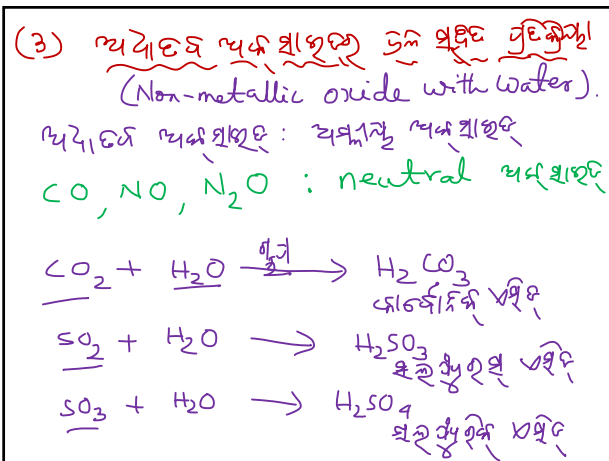 (3) ଅଧାତବ ଅକ୍ସାଇଡ୍‌ର ଜଳ ସହିତ ପ୍ରତିକ୍ରିୟା
(Non-metallic oxide with water).
ଅଧାତବ ଅକ୍ସାଇଡ୍ : ଅମ୍ଳୀୟ ଅକ୍ସାଇଡ୍
CO, NO, N₂O : neutral ଅକ୍ସାଇଡ୍
CO₂ + H₂O ⟶ H₂CO₃
କାର୍ବୋନିକ୍ ଏସିଡ୍
SO₂ + H₂O ⟶ H₂SO₃
ସଲଫ୍ୟୁରସ୍ ଏସିଡ୍
SO₃ + H₂O ⟶ H₂SO₄
ସଲଫ୍ୟୁରିକ୍ ଏସିଡ୍